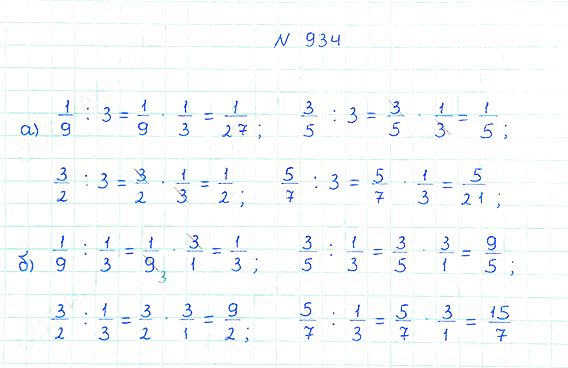 N 934
а) 1/9 : 3 = 1/9 · 1/3 = 1/27; 3/5 : 3 = 3/5 · 1/3 = 1/5;
3/2 : 3 = 3/2 · 1/3 = 1/2; 5/7 : 3 = 5/7 · 1/3 = 5/21;
б) 1/9 : 1/3 = 1/9 3 · 3/1 = 1/3; 3/5 : 1/3 = 3/5 · 3/1 = 9/5;
3/2 : 1/3 = 3/2 · 3/1 = 9/2; 5/7 : 1/3 = 5/7 · 3/1 = 15/7